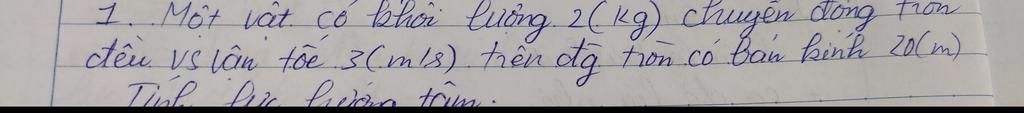 1. Một vật có khối lượng 2(kg) chuyển động tròn
đều vs vận tốc 3(m/s) trên đg tròn có bán kính 20(m)
Tính lực hướng tâm.